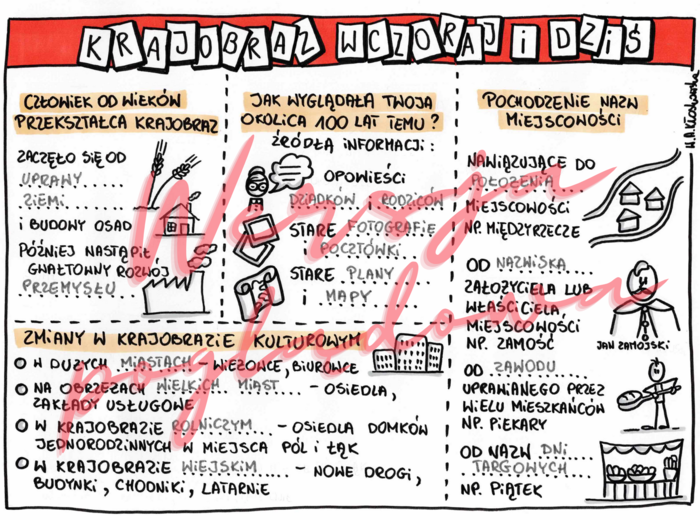 KRAJOBRAZ WCZORAJ I DZIŚ
CZŁOWIEK OD WIEKÓW
PRZEKSZTAŁCA KRAJOBRAZ
ZACZĘŁO SIĘ OD
UPRAWY
ZIEMI
I BUDOWY OSAD
PÓŹNIEJ NASTĄPIŁ
GWAŁTOWNY ROZWÓJ
PRZEMYSŁU
JAK WYGLĄDAŁA TWOJA
OKOLICA 100 LAT TEMU?
ŹRÓDŁA INFORMACJI:
OPOWIEŚCI
DZIADKÓW I RODZICÓW
STARE FOTOGRAFIE
I POCZTÓWKI
STARE PLANY
I MAPY
ZMIANY W KRAJOBRAZIE KULTUROWYM
W DUŻYCH MIASTACH – WIEŻOWCE, BIUROWCE
NA OBRZEŻACH WIELKICH MIAST – OSIEDLA,
ZAKŁADY USŁUGOWE
W KRAJOBRAZIE ROLNICZYM – OSIEDLA DOMKÓW
JEDNORODZINNYCH W MIEJSCA PÓL I ŁĄK
W KRAJOBRAZIE WIEJSKIM – NOWE DROGI,
BUDYNKI, CHODNIKI, LATARNIE
POCHODZENIE NAZW
MIEJSCOWOŚCI
NAWIĄZUJĄCE DO
POŁOŻENIA
MIEJSCOWOŚCI
NP. MIĘDZYRZECZE
OD NAZWISKA
ZAŁOŻYCIELA LUB
WŁAŚCICIELA
MIEJSCOWOŚCI
NP. ZAMOŚĆ
JAN ZAMOJSKI
OD ZAWODU
UPRAWIANEGO PRZEZ
WIELU MIESZKAŃCÓW
NP. PIEKARY
OD NAZW DNI
TARGOWYCH
NP. PIĄTEK
Wersja
poglądowa